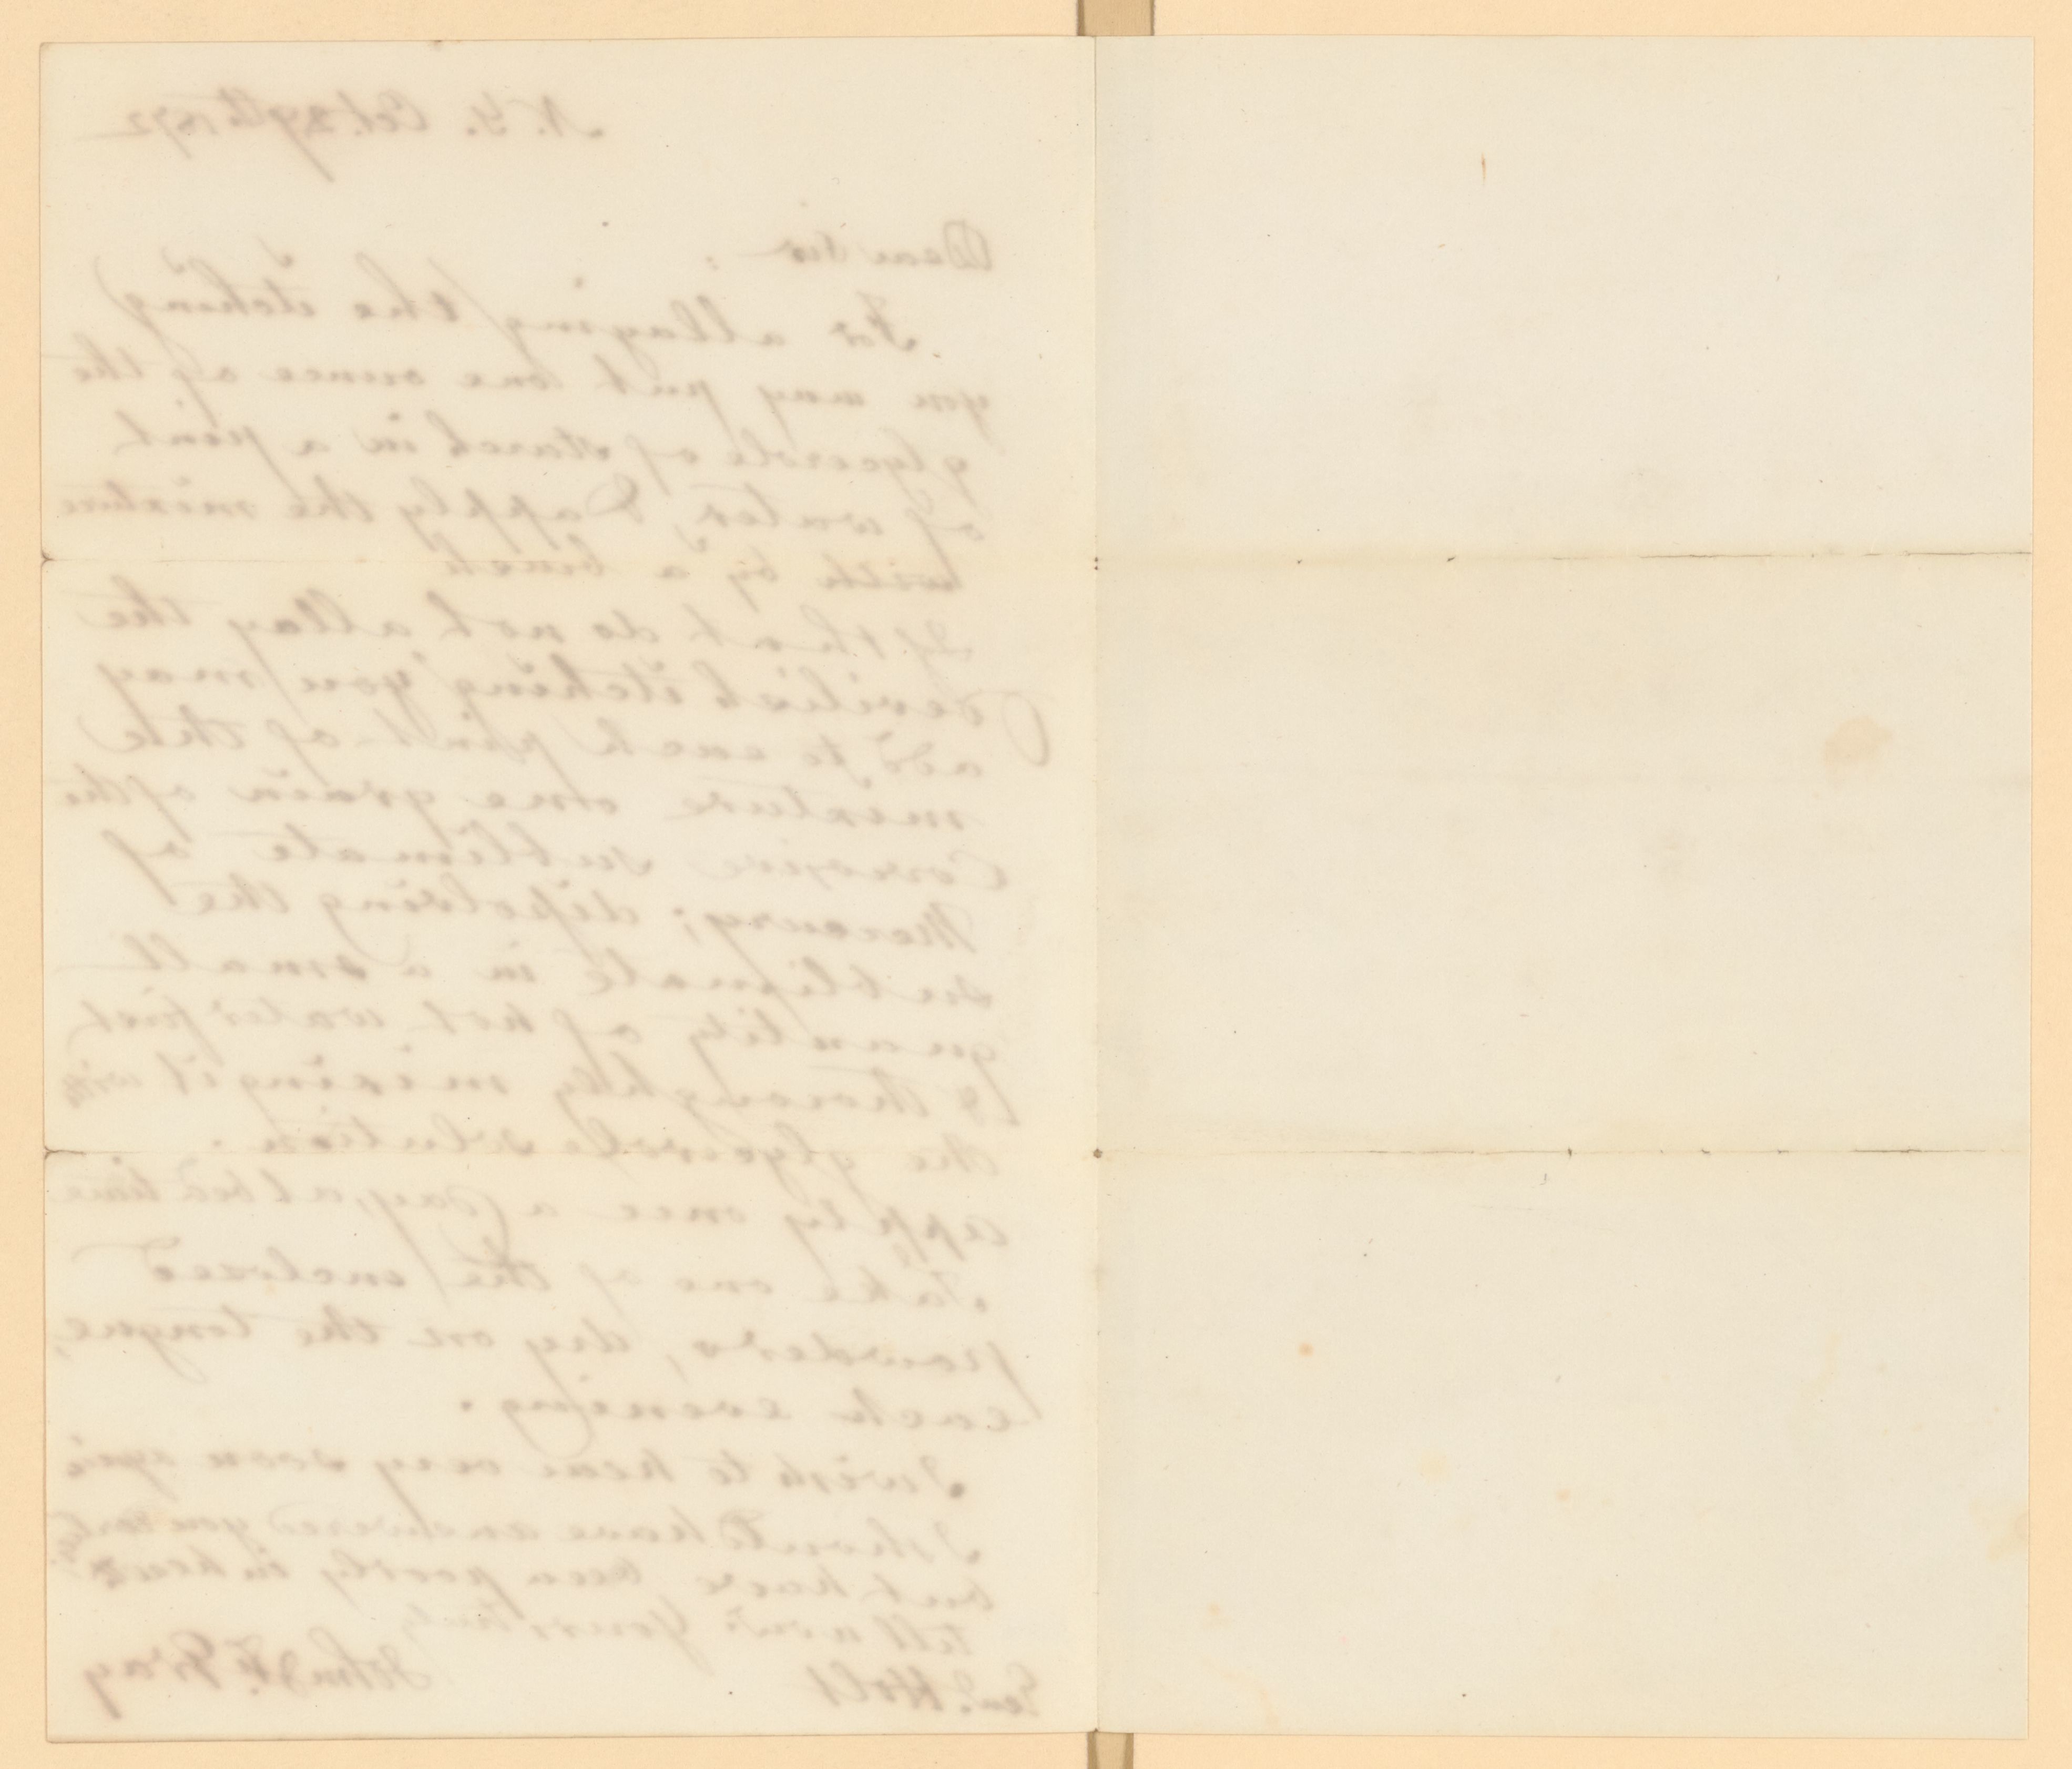 N.Y. Oct. 29th 1872
Dear Sir :
For allaying the itching
you may put one ounce of the
glycerole of starch in a pint
of water, & apply the mixture
with by a brush
If that do not allay the
devilish itching you may
add to each pint of the
mixture one grain of the
Corrosive sublimate of
Mercury; dissolving the
sublimate in a small
quantity of hot water first
& thoroughly mixing it with
the glycerole solution.
apply once a day, at bed time
Take one of the enclosed
powders, dry on the tongue,
each evening.
I wish to hear very soon again
I should have answered you
but have been poorly in health
till now Yours truly
John F. Gray
Genl. Holt